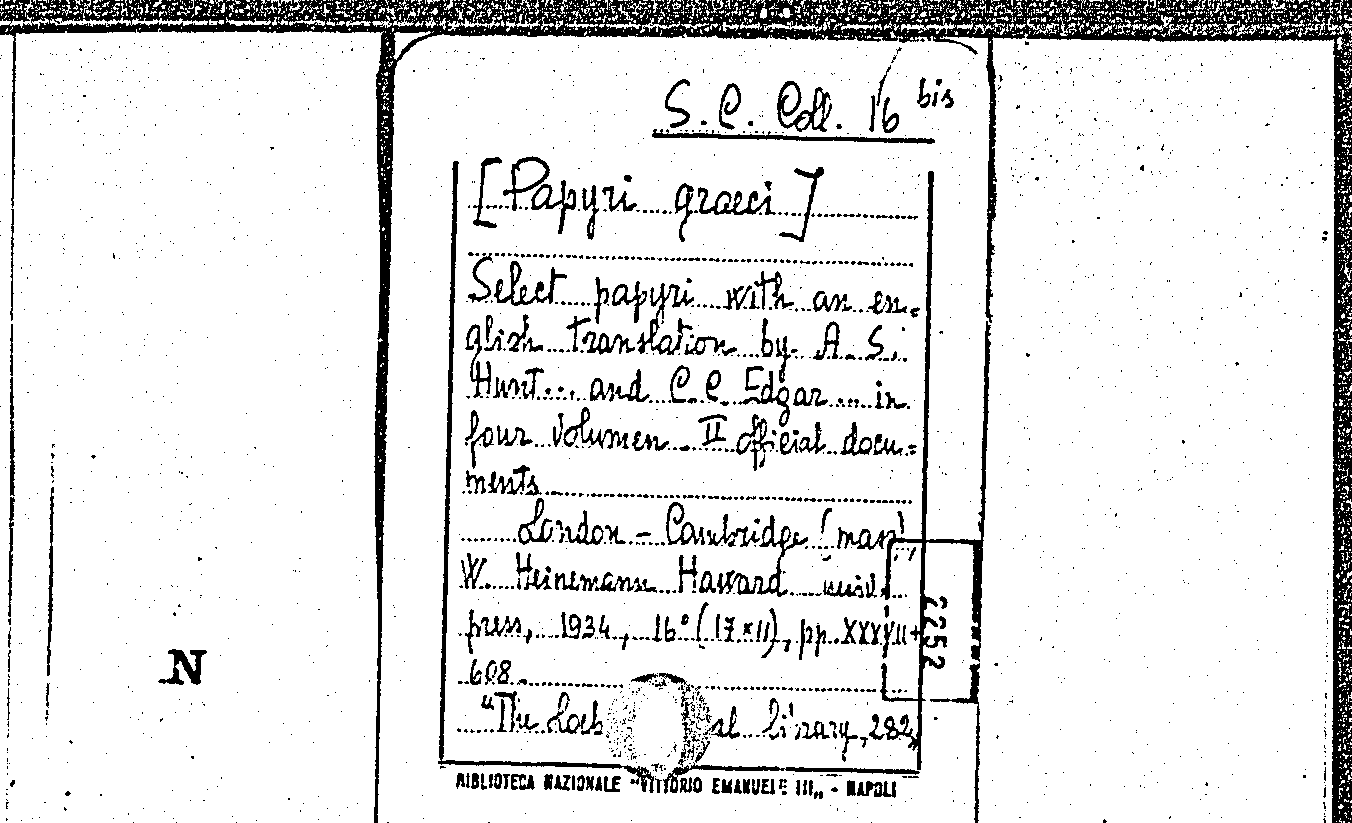 S. C. Coll. 16 bis
[Papyri graeci]
Select papyri with an en=
glish translation by A. S.
Hunt... and C. C. Edgar... in
four volumen. II official docu=
ments
London - Cambridge (mass)
W. Heinemann Harvard univ.
press, 1934, 16° (17x11), pp. XXXVII+
608.
"The Loeb al library, 282,
BIBLIOTECA NAZIONALE "VITTORIO EMANUELE III„ - NAPOLI
2252
N